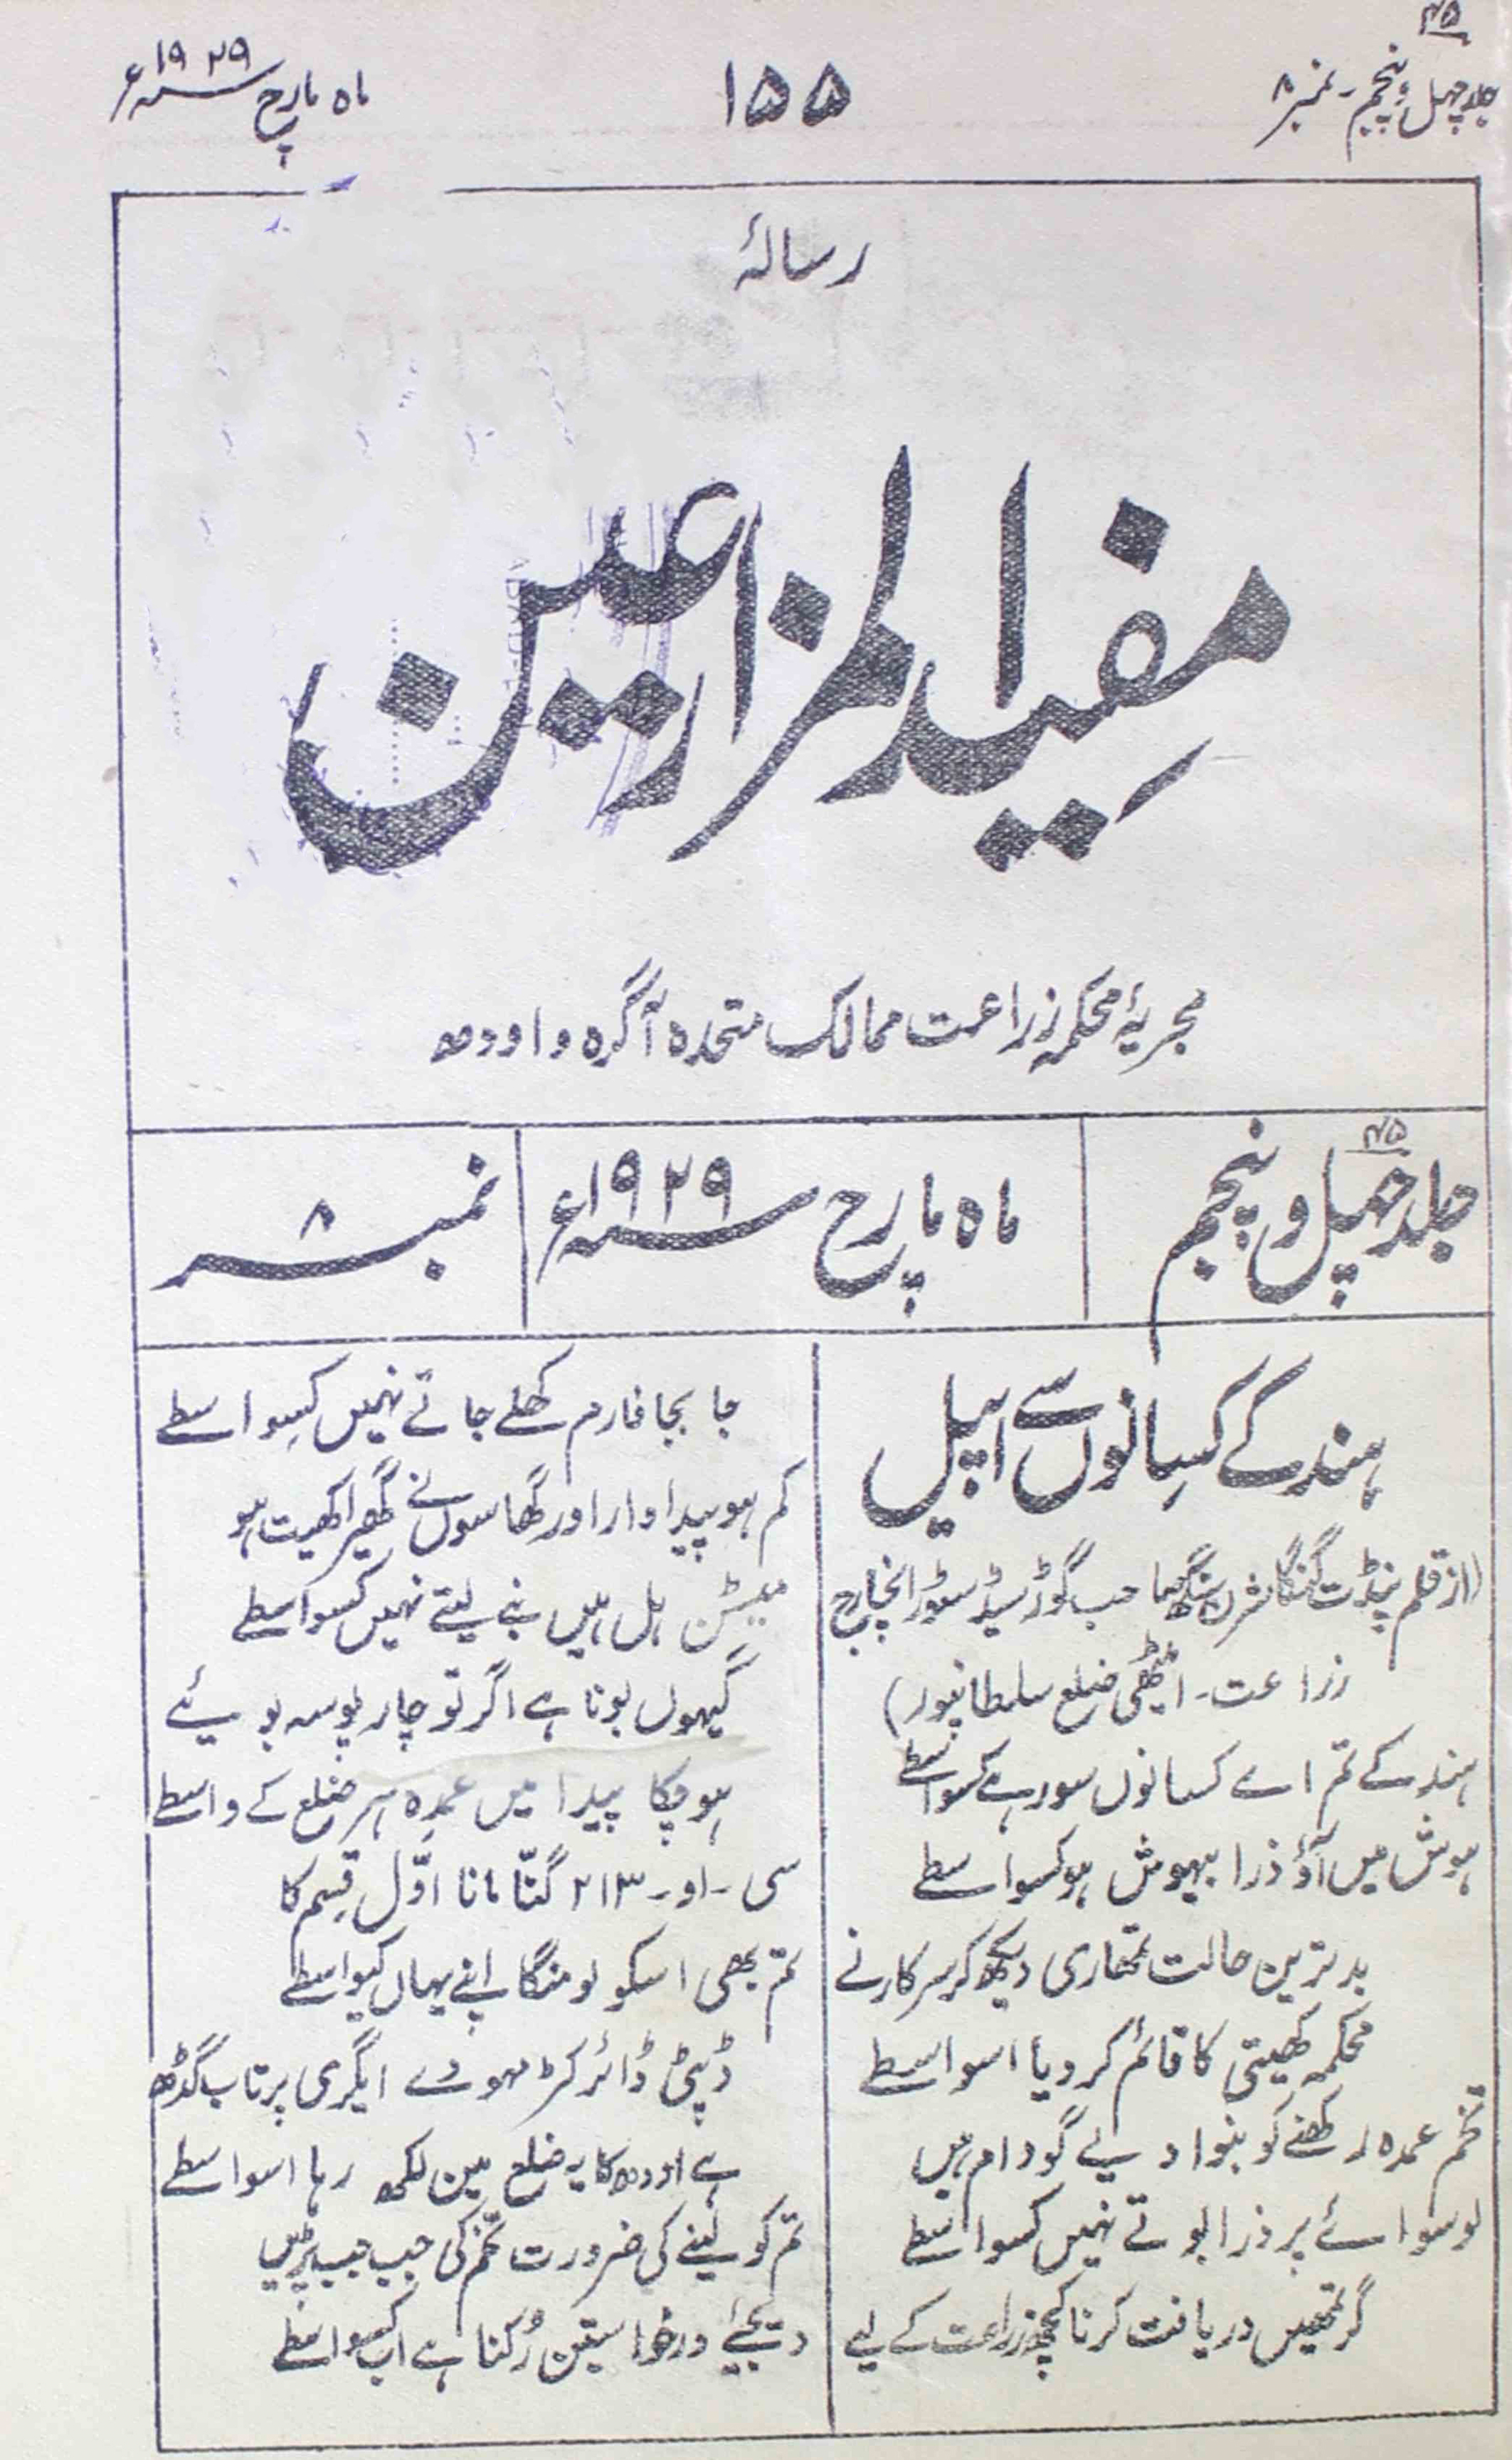 ۴۵
جلد چہل و پنجم - نمبر ۸
۱۵۵
ماہ مارچ سنہ ۱۹۲۹ء
رسالۂ
مفید المزارعین
مجریۂ محکمہ زراعت ممالک متحدہ آگرہ و اودھ
۴۵
جلد چہل و پنجم
ماہ مارچ سنہ ۱۹۲۹ء
نمبر ۸
ہند کے کسانوں سے اپیل
(از قلم پنڈت گنگا شرن سنگھا حب گوڑ سیڈ سٹور انچارج
زراعت - امیٹھی ضلع سلطانپور)
ہند کے تم اے کسانوں سو رہے کسواسطے
ہوش میں آؤ ذرا بیہوش ہو کسواسطے
بدترین حالت تمھاری دیکھ کر سرکار نے
محکمہ کھیتی کا قائم کر دیا اسواسطے
تخم عمدہ رکھنے کو بنوا دیے گودام ہیں
لو سوائے پر ذرا بوتے نہیں کسواسطے
گر تمھیں دریافت کرنا کچھ زراعت کے لیے
جا بجا فارم کھلے جاتے نہیں کسواسطے
کم ہو پیداوار اور گھاسوں نے گھیرا کھیت ہو
میسٹن ہل ہیں بنے لیتے نہیں کسواسطے
گیہوں بونا ہے اگر تو چار پوسہ بویئے
ہو چکا پیدا میں عمدہ ہر ضلع کے واسطے
سی - او - ۲۱۳ گنّا مانا اوّل قسم کا
تم بھی اسکو لو منگا اپنے یہاں کیواسطے
ڈپٹی ڈائرکٹر ہوے ایگری پرتاب گڈھ
ہے اودھ کا یہ ضلع مین لکھ رہا اسواسطے
تم کو لینے کی ضرورت تخم کی جب جب پڑیں
دیجیئے درخواستیں رُکنا ہے اب کسواسطے